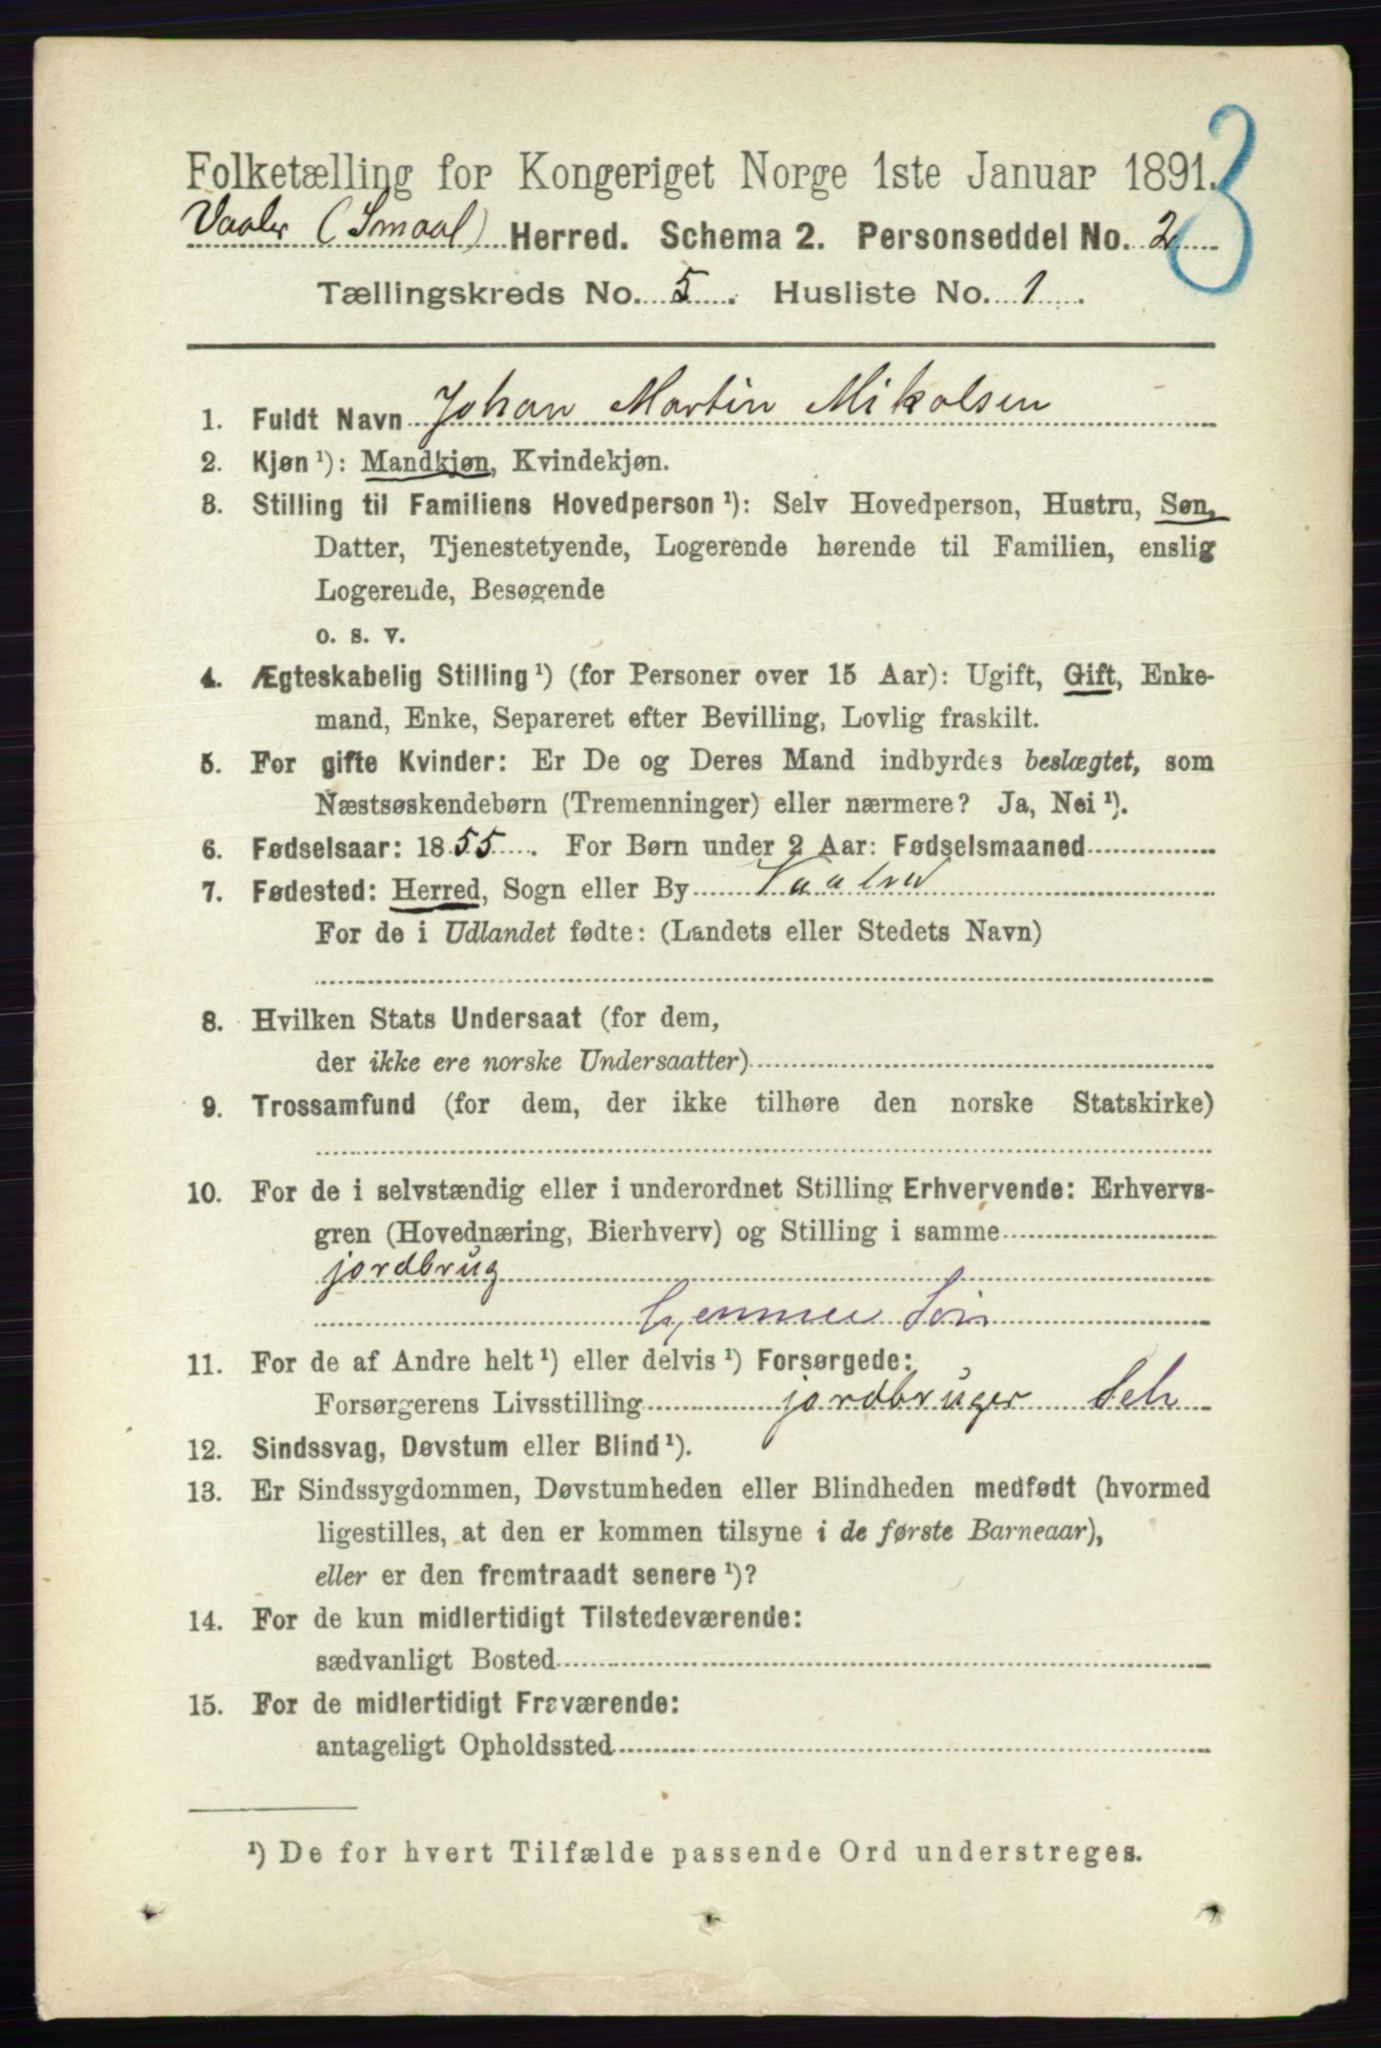 3
Folketælling for Kongeriget Norge 1ste Januar 1891.
Vaaler (Smaal) Herred. Schema 2. Personseddel No. 2
Tællingskreds No. 5. Husliste No. 1.
1. Fuldt Navn Johan Martin Mikalsen
2. Kjøn ¹): Mandkjøn, Kvindekjøn.
3. Stilling til Familiens Hovedperson ¹): Selv Hovedperson, Hustru, Søn,
Datter, Tjenestetyende, Logerende hørende til Familien, enslig
Logerende, Besøgende
o. s. v.
4. Ægteskabelig Stilling ¹) (for Personer over 15 Aar): Ugift, Gift, Enke-
mand, Enke, Separeret efter Bevilling, Lovlig fraskilt.
5. For gifte Kvinder: Er De og Deres Mand indbyrdes beslægtet, som
Næstsøskendebørn (Tremenninger) eller nærmere? Ja, Nei ¹).
6. Fødselsaar: 1855. For Børn under 2 Aar: Fødselsmaaned
7. Fødested: Herred, Sogn eller By Vaaler
For de i Udlandet fødte: (Landets eller Stedets Navn)
8. Hvilken Stats Undersaat (for dem,
der ikke ere norske Undersaatter)
9. Trossamfund (for dem, der ikke tilhøre den norske Statskirke)
10. For de i selvstændig eller i underordnet Stilling Erhvervende: Erhvervs-
gren (Hovednæring, Bierhverv) og Stilling i samme
jordbrug
11. For de af Andre helt ¹) eller delvis ¹) Forsørgede:
Forsørgerens Livsstilling jordbruger Selv
12. Sindssvag, Døvstum eller Blind ¹).
13. Er Sindssygdommen, Døvstumheden eller Blindheden medfødt (hvormed
ligestilles, at den er kommen tilsyne i de første Barneaar),
eller er den fremtraadt senere ¹)?
14. For de kun midlertidigt Tilstedeværende:
sædvanligt Bosted
15. For de midlertidigt Fraværende:
antageligt Opholdssted
¹) De for hvert Tilfælde passende Ord understreges.